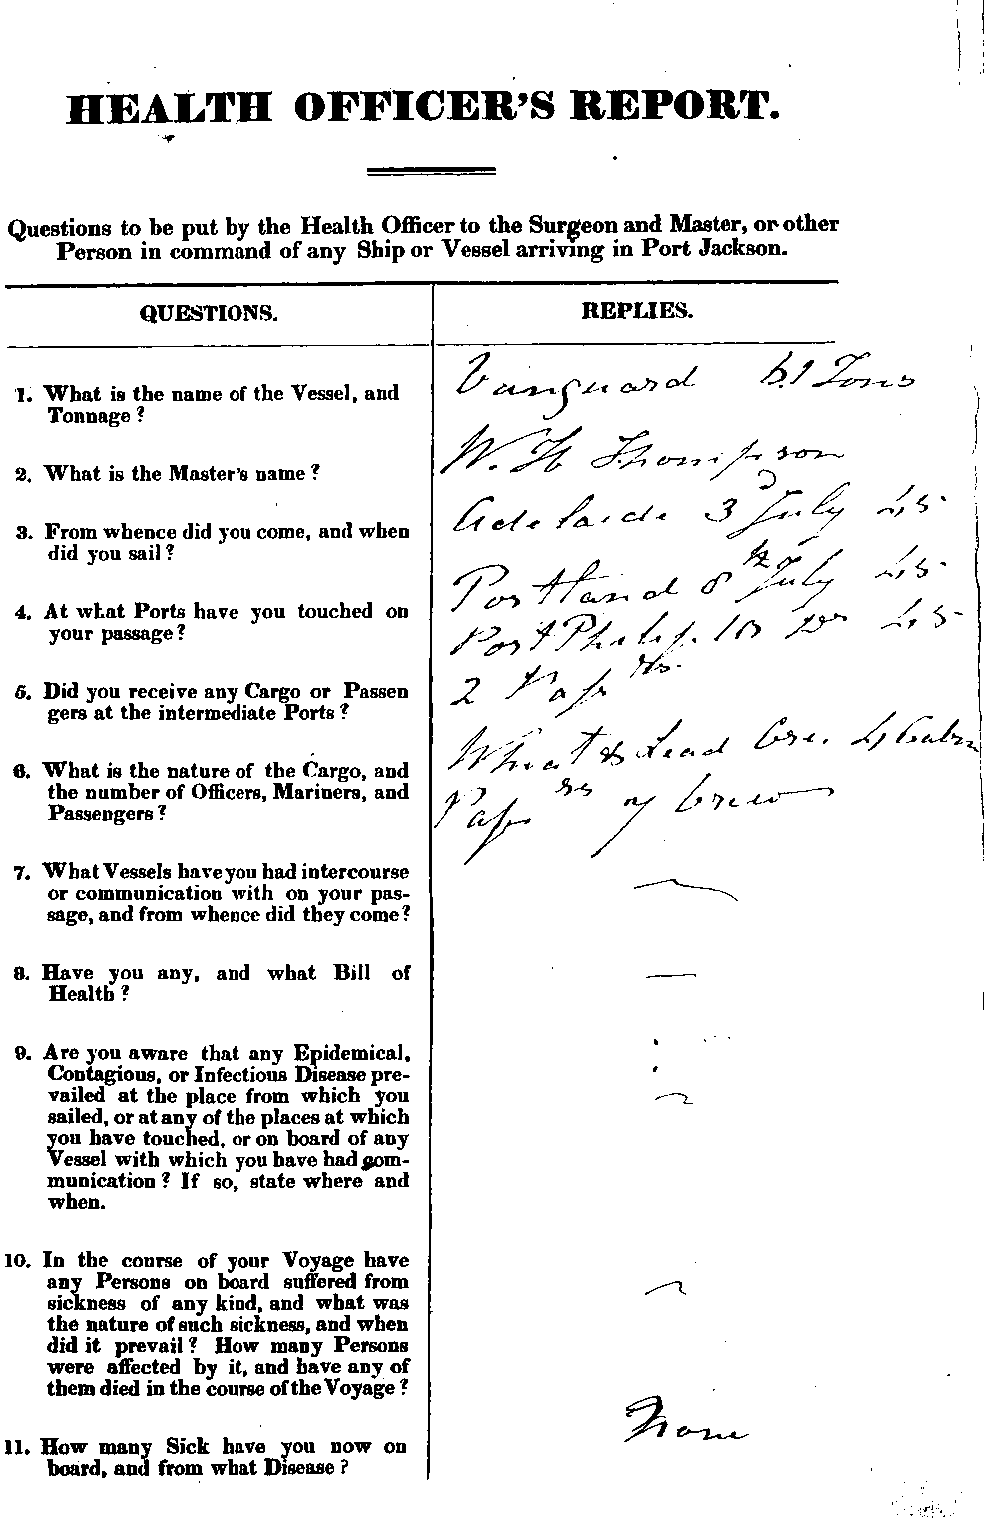 HEALTH OFFICER'S REPORT.
Questions to be put by the Health Officer to the Surgeon and Master, or other
Person in command of any Ship or Vessel arriving in Port Jackson.
QUESTIONS.
REPLIES.
1. What is the name of the Vessel, and
Tonnage?
Vanguard 61 Tons
2. What is the Master's name?
W. H Thompson
3. From whence did you come, and when
did you sail?
Adelaide 3d July 45
4. At what Ports have you touched on
your passage?
Portland 8th July 45
Port Philip 10 Do 45
5. Did you receive any Cargo or Passen
gers at the intermediate Ports?
2 Pass
6. What is the nature of the Cargo, and
the number of Officers, Mariners, and
Passengers?
Wheat & Lead Ore. 4 Cabin
Passrs 7 Crew
7. What Vessels have you had intercourse
or communication with on your pas-
sage, and from whence did they come?
8. Have you any, and what Bill of
Health?
9. Are you aware that any Epidemical,
Contagious, or Infectious Disease pre-
vailed at the place from which you
sailed, or at any of the places at which
you have touched, or on board of any
Vessel with which you have had com-
munication? If so, state where and
when.
10. In the course of your Voyage have
any Persons on board suffered from
sickness of any kind, and what was
the nature of such sickness, and when
did it prevail? How many Persons
were affected by it, and have any of
them died in the course of the Voyage?
11. How many Sick have you now on
board, and from what Disease?
None